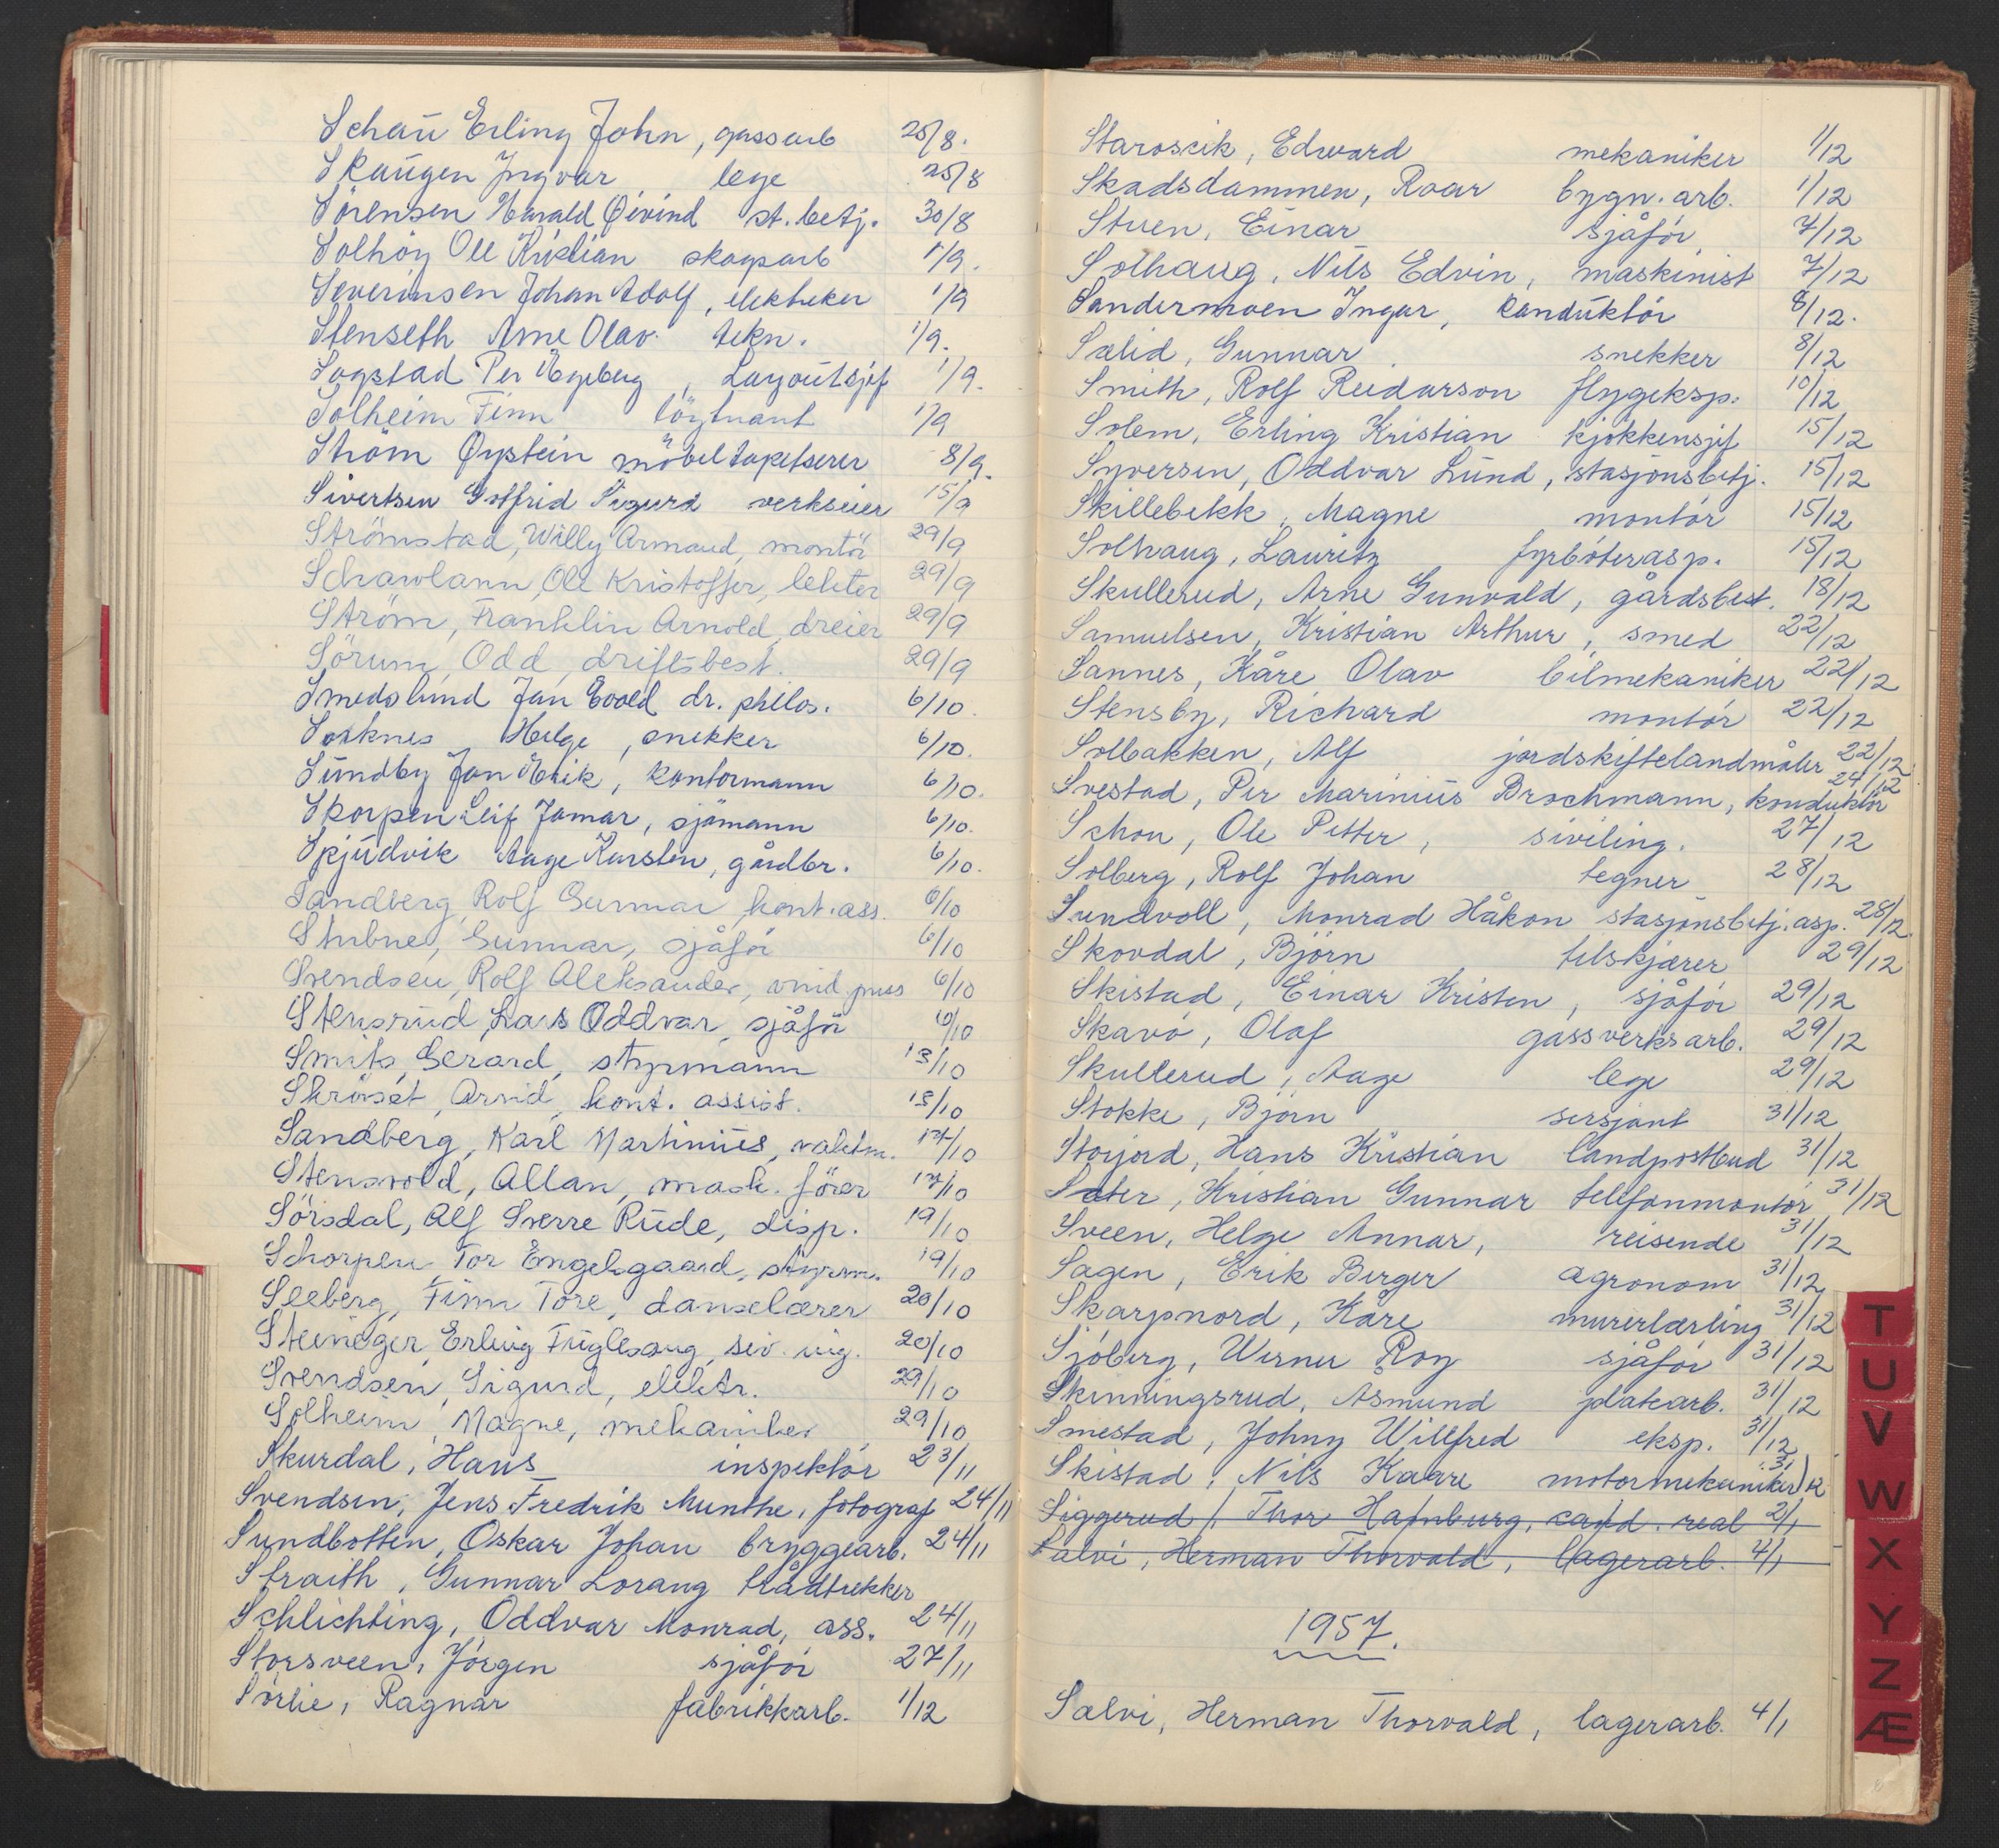 Schau Erling John, gassarb 25/8.
Skaugen Ingvar lege 25/8
Sörensen Harald Öivind st. betj. 30/8
Solhöy Ole Kristian skogsarb 1/9.
Severinsen Johan Adolf, elektriker 1/9
Stenseth Arne Olav tekn. 1/9.
Sogstad Per Egeberg, Layoutsjef 1/9.
Solheim Finn löytnant 1/9
Ström Øystein möbeltapetserer 8/9.
Sivertsen Gotfrid Sigurd verkseier 15/9
Strömstad, Willy Armand, montör 29/9
Schawlann, Ole Kristoffer, lektor 29/9
Ström, Franklin Arnold, dreier 29/9
Sörum, Odd, driftsbest. 29/9
Smedslund Jan Evald dr. philos. 6/10.
Sorknes Helge, snekker 6/10.
Sundby Jan Erik, kontormann 6/10.
Skorpen Leif Jomar, sjömann 6/10.
Skjudvik Aage Karsten, gårdbr. 6/10.
Sandberg, Rolf Gunnar, kont. ass. 6/10
Stubne, Gunnar, sjåför 6/10
Svendsen, Rolf Aleksander, vind.puss 6/10
Stensrud, Lars Oddvar, sjåför 6/10
Smits, Gerard, styrmann 13/10
Skröset, Arvid, kont. assist. 15/10
Sandberg, Karl Martinius, vaktm. 17/10
Stensvold, Allan, mask. förer 17/10
Sörsdal, Alf Sverre Rude, disp. 19/10
Schorpen Tor Engelsgaard, styrm. 19/10
Seeberg, Finn Tore, danselærer 20/10
Steineger, Erling Fuglesang, siv. ing. 20/10
Svendsen, Sigurd, elektr. 29/10
Solheim, Magne, mekaniker 29/10
Skurdal, Hans inspektör 23/11
Svendsen, Jens Fredrik Munthe, fotograf 24/11
Sundbotten, Oskar Johan bryggearb. 24/11
Straith, Gunnar Lorang trådtrekker
Schlichting, Oddvar Monrad, ass. 24/11
Storsveen, Jörgen sjåför 27/11
Sörlie, Ragnar fabrikkarb. 1/12
Staroscik, Edward mekaniker 1/12
Skadsdammen, Roar bygn. arb. 1/12
Stuen, Einar sjåför, 7/12
Solhaug, Nils Edvin, maskinist 7/12
Sandermoen Ingar, konduktör 8/12.
Sælid, Gunnar snekker 8/12
Smith, Rolf Reidarson flygeksp. 10/12
Solem, Erling Kristian kjökkensjef 15/12
Syversen, Oddvar Lund, stasjonsbetj. 15/12
Skillebekk, Magne montör 15/12
Solhaug, Lauritz fyrböterasp. 15/12
Skullerud, Arne Gunvald, gårdsbest. 18/12
Samuelsen, Kristian Arthur, smed 22/12
Sannes, Kåre Olav bilmekaniker 22/12
Stensby, Richard montör 22/12
Solbakken, Alf jordskiftelandmåler 22/12
Svestad, Per Marinius Brochmann, konduktör 24/12
Schou, Ole Petter, siviling. 27/12
Solberg, Rolf Johan tegner 28/12
Sundvoll, Monrad Håkon stasjonsbetj. asp. 28/12.
Skovdal, Björn tilskjærer 29/12
Skistad, Einar Kristen, sjåför 29/12
Skavö, Olaf gassverksarb. 29/12
Skullerud, Aage lege 29/12
Stokke, Björn sersjant 31/12
Storjord, Hans Kristian landpostbud 31/12
Sæter, Kristian Gunnar telefonmontör 31/12
Sveen, Helge Annar, reisende 31/12
Sagen, Erik Berger agronom 31/12
Skarpnord, Kåre murerlærling 31/12
Sjöberg, Werner Roy sjåför 31/12
Skinningsrud, Asmund platearb. 31/12
Smestad, Johny Willfred eksp. 31/12
Skistad, Nils Kaare motormekaniker 31/12
Siggerud, Thor Hamburg, cand. real 2/1
Sælvi, Herman Thorvald, lagerarb. 4/1
1957.
Sælvi, Herman Thorvald, lagerarb. 4/1
T
U
V
W
X
Y
Z
Æ